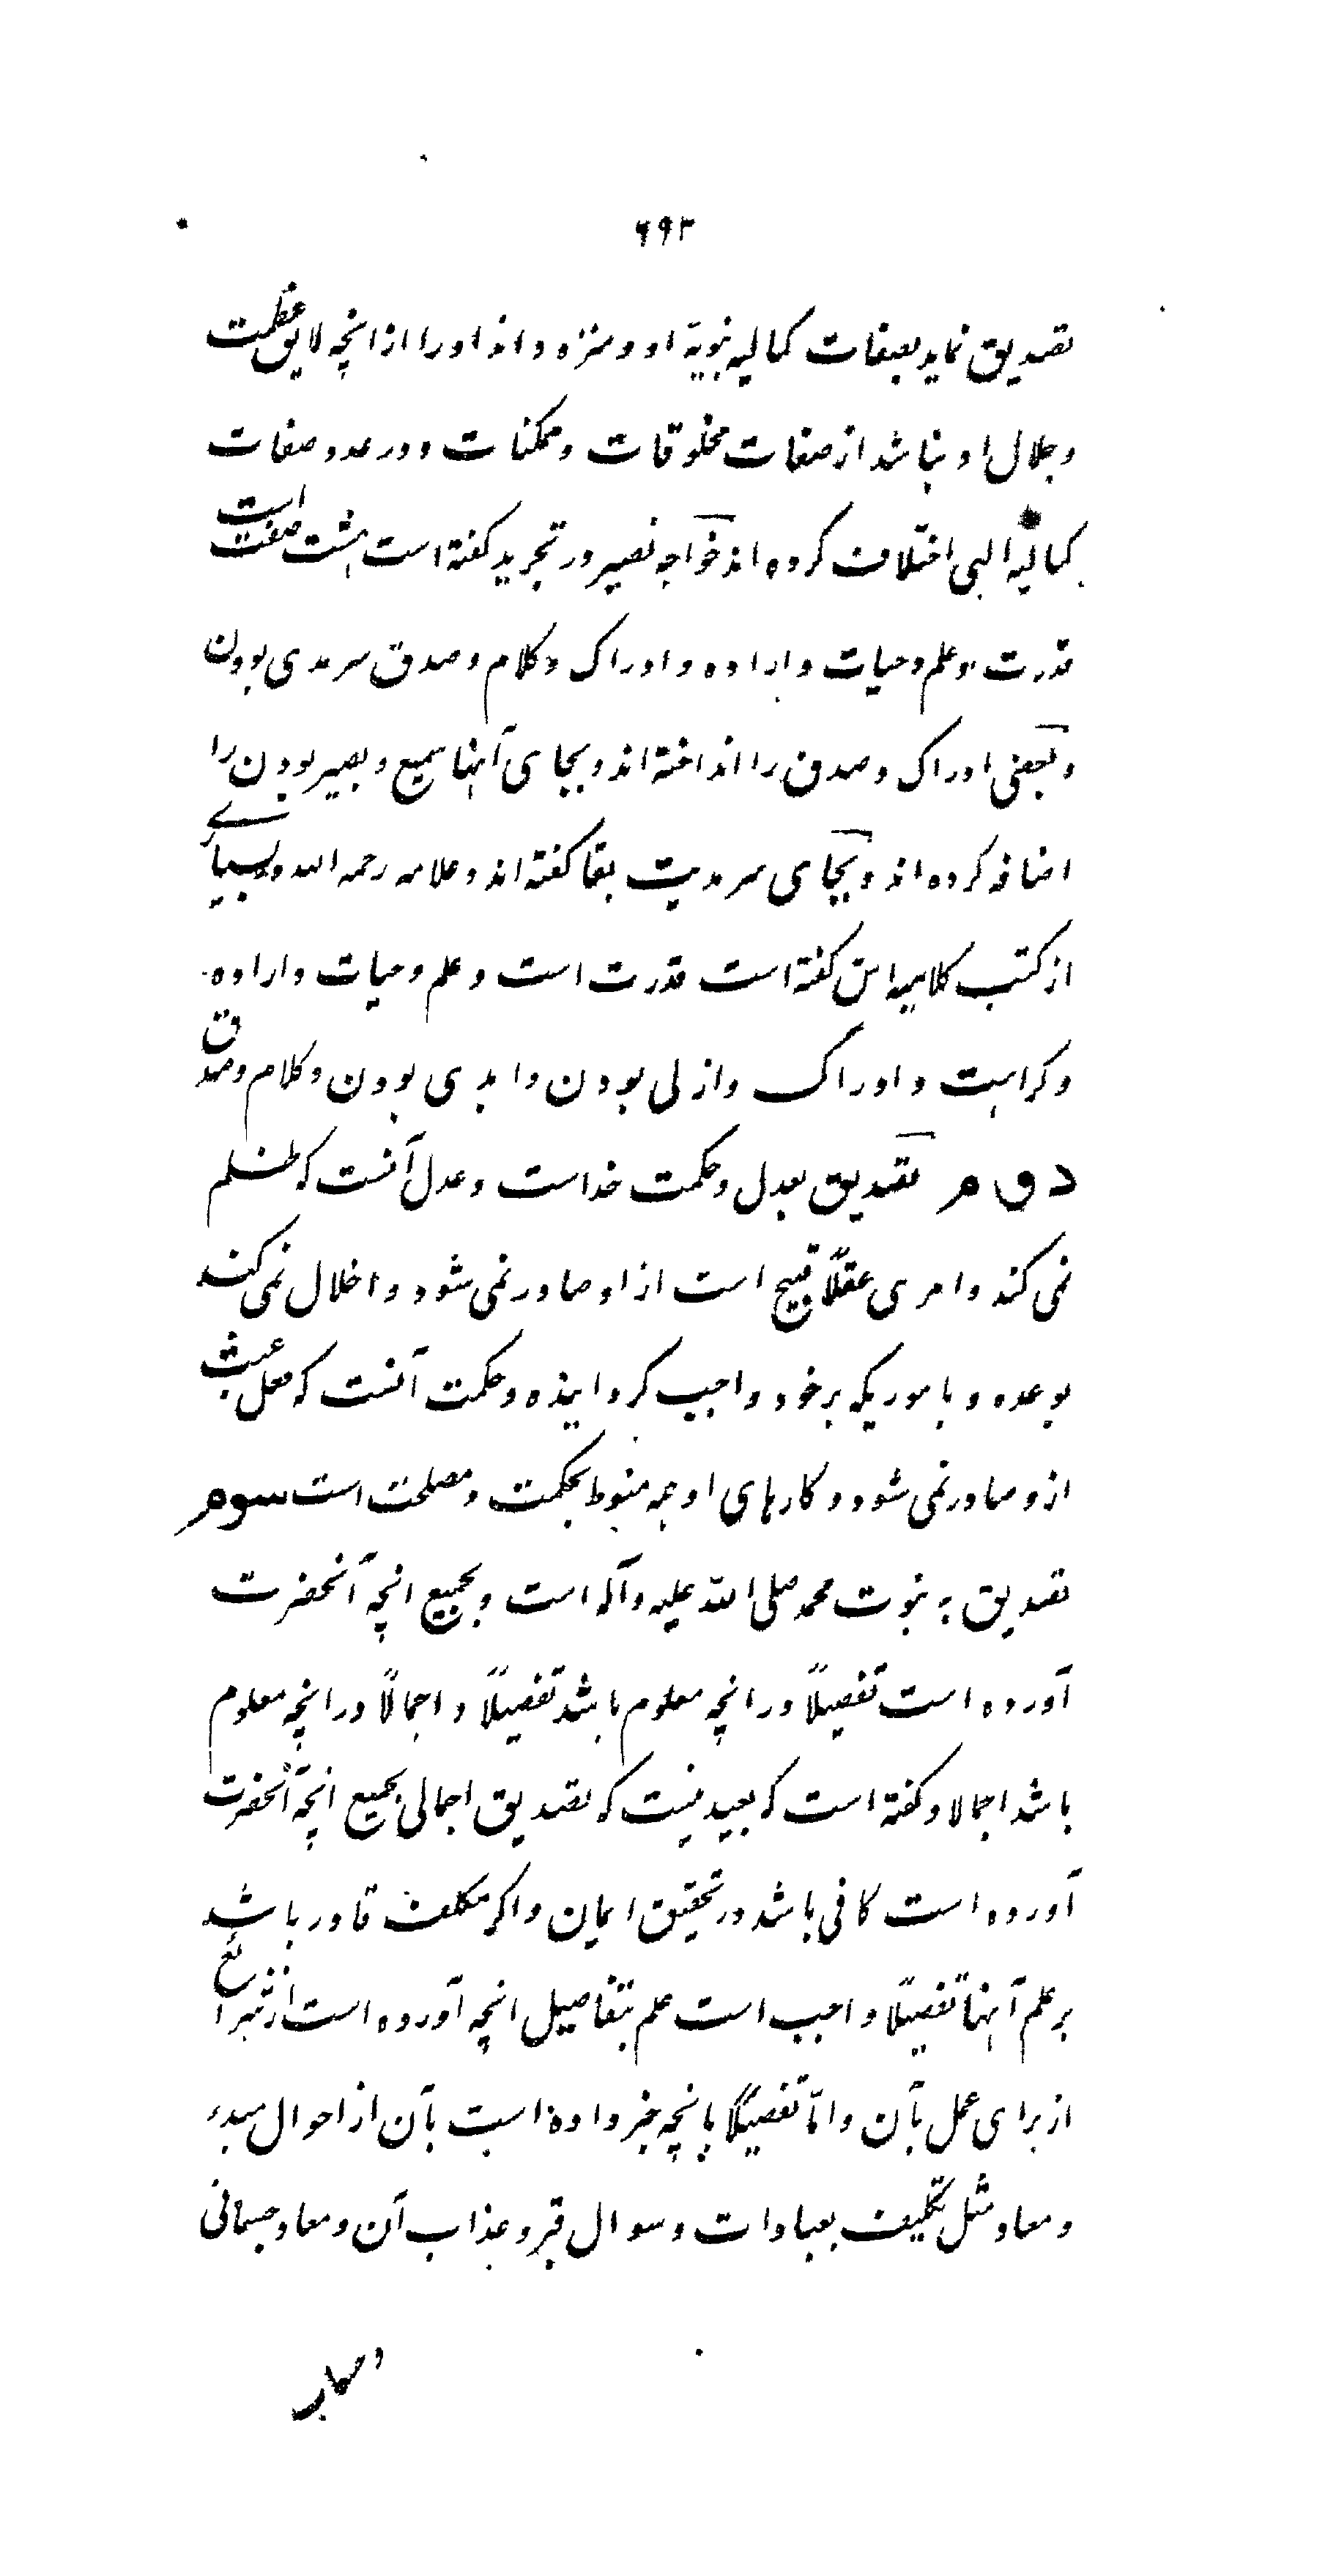 ۶۹۳
تصدیق نماید بصفات کمالیه ثبوتیهٔ او و منزه داند او را از انچه لایق عظمت
و جلال او نباشد از صفات مخلوقات و ممکنات و در عدد صفات
کمالیه الهی اختلاف کرده اند خواجه نصیر در تجرید کفته است هشت صفت است
قدرت و علم و حیات و اراده و ادراک و کلام و صدق سرمدی بودن
و بعضی ادراک و صدق را انداخته اند و بجای آنها سمیع و بصیر بودن را
اضافه کرده اند و بجای سرمدیت بقا کفته اند و علامه رحمه الله در بسیاری
از کتب کلامیه اش کفته است قدرت است و علم و حیات و اراده
و کراهت و ادراک و ازلی بودن و ابدی بودن و کلام و صدق
دوم تصدیق بعدل و حکمت خداست و عدل آنست که ظلم
نمی کند و امری عقلاً قبیح است از او صادر نمی شود و اخلال نمی کند
بوعده و باموریکه بر خود واجب کردانیده و حکمت آنست که فعل عبث
ازو صادر نمی شود و کارهای او همه منوط بحکمت و مصلحت است سوم
تصدیق به نبوت محمد صلی الله علیه و آله است و بجمیع انچه آنحضرت
آورده است تفصیلاً در انچه معلوم باشد تفصیلاً و اجمالاً در انچه معلوم
باشد اجمالا و کفته است که بعید نیست که تصدیق اجمالی بجمیع انچه آنحضرت
آورده است کافی باشد در تحقیق ایمان و اکر مکلف قادر باشد
بر علم آنها تفصیلاً واجب است علم بتفاصیل انچه آورده است از شرائع
از برای عمل بآن و امّا تفصیلاً بانچه خبر داده است بآن از احوال مبدء
و معاد مثل تکلیف بعبادات و سوال قبر و عذاب آن و معاد جسمانی